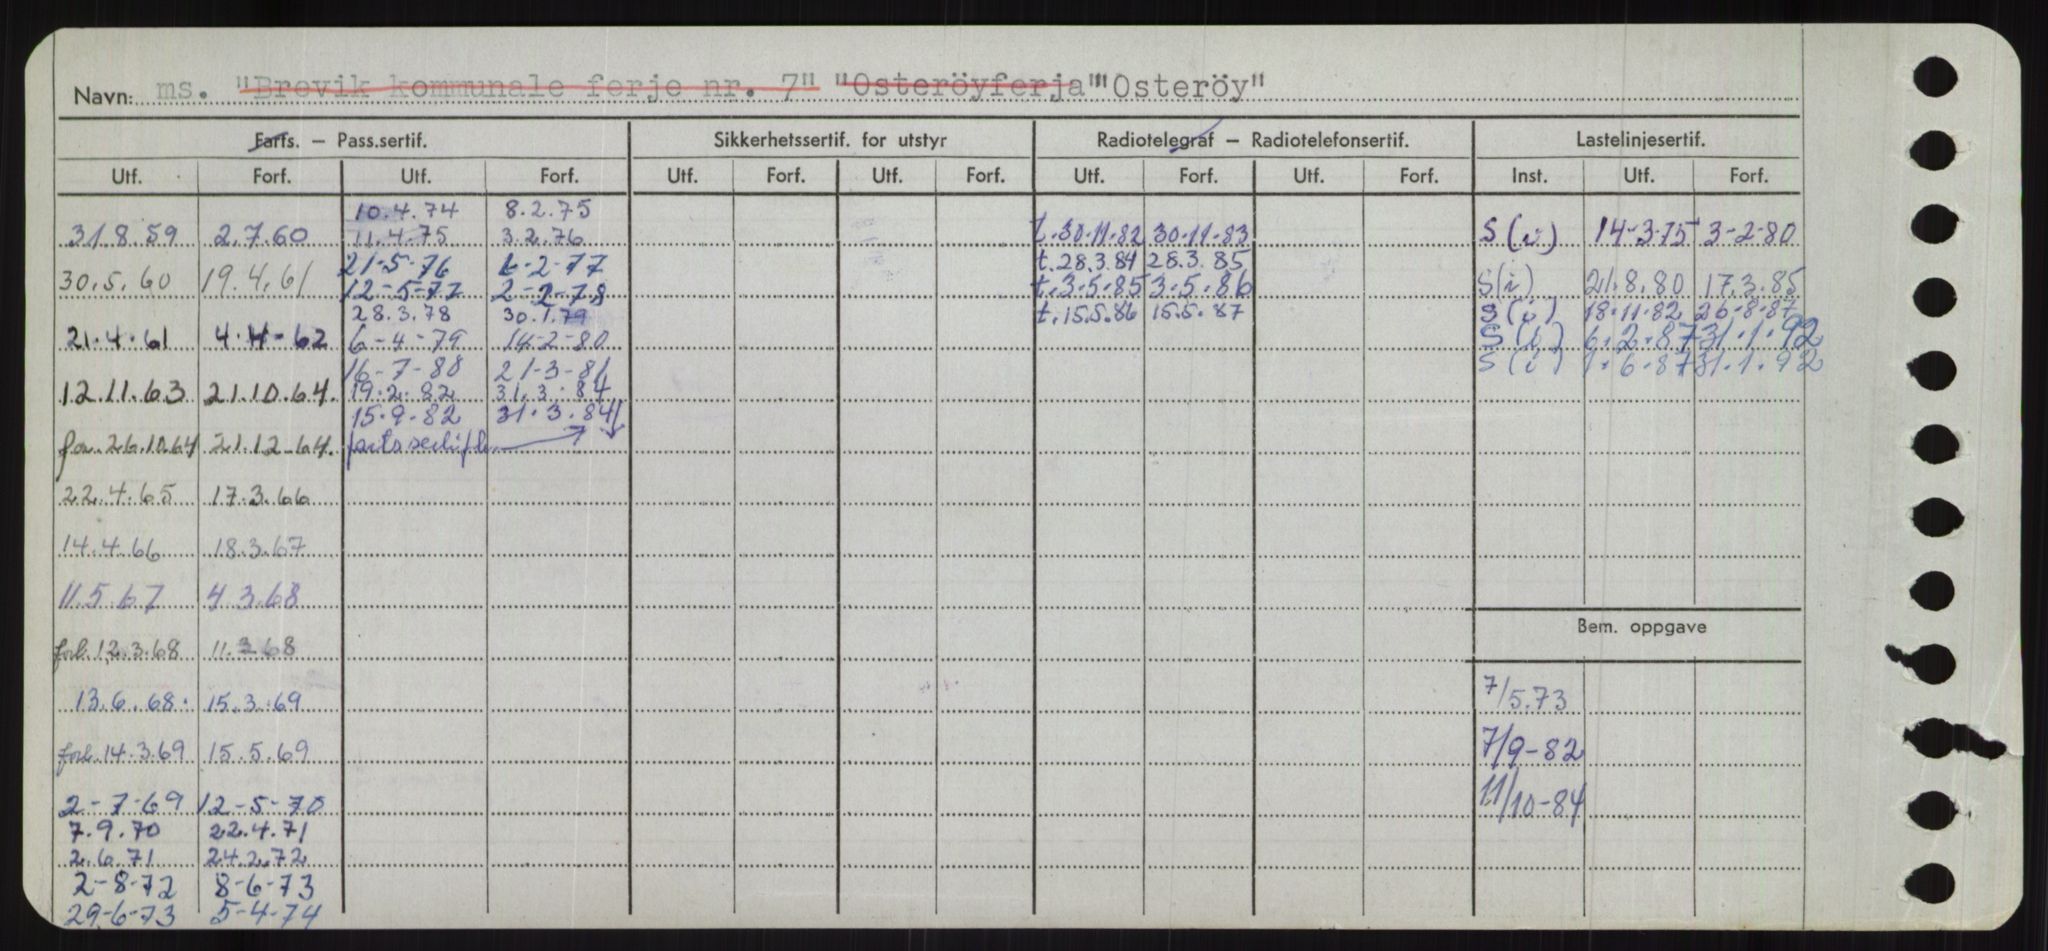 Navn: ms. "Brevik kommunale ferje nr. 7" "Osteröyferja" "Osteröy"
Farts. – Pass.sertif. Sikkerhetssertif. for utstyr Radiotelegraf – Radiotelefonsertif. Lastelinjesertif.
Utf. Forf. Utf. Forf. Utf. Forf. Utf. Forf. Utf. Forf. Utf. Forf. Inst. Utf. Forf.
10.4.74 8.2.75
31.8.59 2.7.60 11.4.75 3.2.76 t.30.11.82 30.11.83 S(i) 14-3-75 3-2-80
21-5-76 6-2-77 t.28.3.84 28.3.85
30.5.60 19.4.61 12-5-77 2-2-78 t.3.5.85 3.5.86 S(i) 21.8.80 17.3.85
28.3.78 30.1.79 t.15.5.86 15.5.87 S(i) 18.11.82 26.8.87
21.4.61 4.4-62 6-4-79 14-2-80 S(i) 6.2.87 31.1.92
16-7-80 21-3-81 S(i) 1.6.87 31.1.92
12.11.63 21.10.64. 19.2.82 31.3.84
15.9.82 31.3.84
26.10.64 21.12.64.
22.4.65 17.3.66
14.4.66 18.3.67
11.5.67 4.3.68
Bem. oppgave
forl.12.3.68 11. 68
13.6.68. 15.3.69 7/5.73
forl.14.3.69 15.5.69 7/9-82
2-7-69 12-5-70 11/10-84
7.9.70 22.4.71
2.6.71 24.2.72
2-8-72 8-6-73
29-6-73 5-4-74